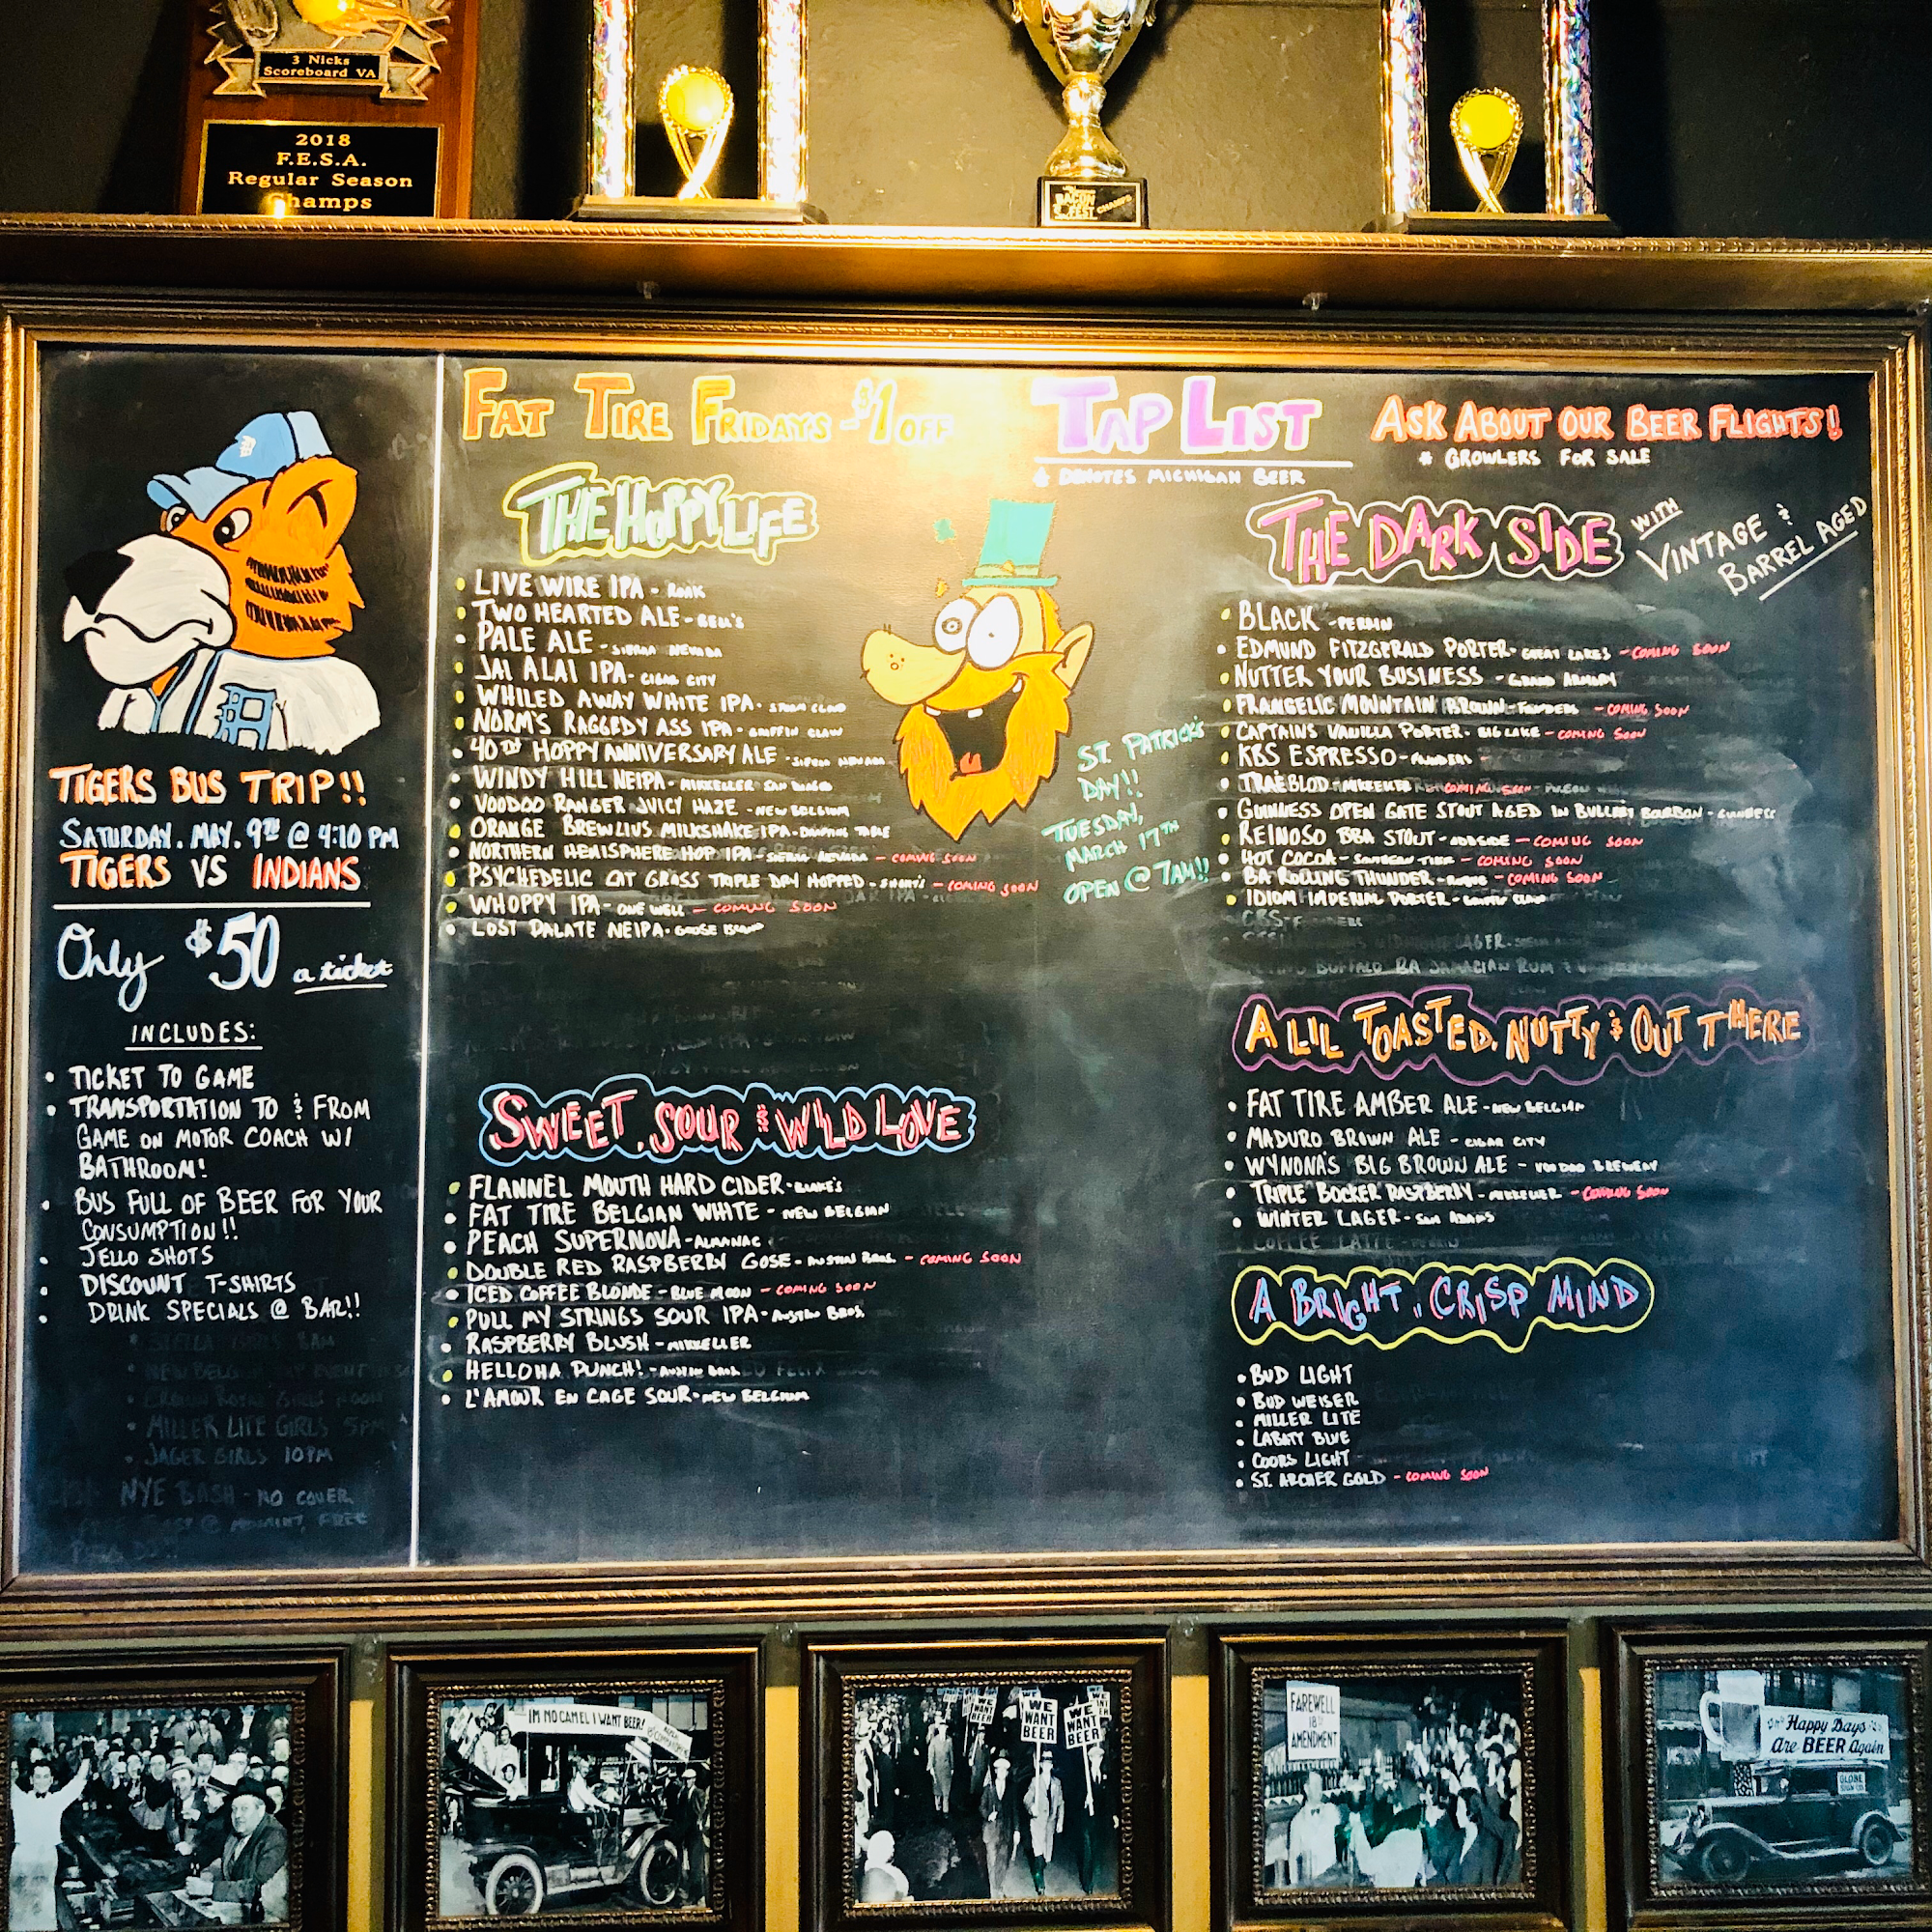 3 Nicks
Scoreboard VA
2018
F.E.S.A.
Regular Season
Champs
BACON
FEST
CHAMPS
TIGERS BUS TRIP!!
SATURDAY. MAY. 9TH @ 4:10 PM
TIGERS VS INDIANS
Only $50 a ticket
INCLUDES:
• TICKET TO GAME
• TRANSPORTATION TO & FROM
GAME ON MOTOR COACH W/
BATHROOM!
• BUS FULL OF BEER FOR YOUR
CONSUMPTION!!
• JELLO SHOTS
• DISCOUNT T-SHIRTS
• DRINK SPECIALS @ BAR!!
• MILLER LITE GIRLS 5PM
• JAGER GIRLS 10PM
NYE BASH - NO COVER
FAT TIRE FRIDAYS -$1 OFF
TAP LIST
DENOTES MICHIGAN BEER
ASK ABOUT OUR BEER FLIGHTS!
* GROWLERS FOR SALE
THE HOPPY LIFE
• LIVE WIRE IPA - ROAK
• TWO HEARTED ALE - BELL'S
• PALE ALE - SIERRA NEVADA
• JAI ALAI IPA - CIGAR CITY
• WHILED AWAY WHITE IPA -
• NORM'S RAGGEDY ASS IPA - GRIFFIN CLAW
• 40TH HOPPY ANNIVERSARY ALE - SIERRA NEVADA
• WINDY HILL NEIPA - MIKKELLER SAN DIEGO
• VOODOO RANGER JUICY HAZE - NEW BELGIUM
• ORANGE BREWLIUS MILKSHAKE IPA -
• NORTHERN HEMISPHERE HOP IPA - SIERRA NEVADA - COMING SOON
• PSYCHEDELIC CAT GRASS TRIPLE DRY HOPPED - SHORT'S - COMING SOON
• WHOPPY IPA - ONE WELL - COMING SOON
• LOST PALATE NEIPA - GOOSE ISLAND
ST. PATRICK'S
DAY!!
TUESDAY,
MARCH 17TH
OPEN @ 7AM!!
SWEET, SOUR & WILD LOVE
• FLANNEL MOUTH HARD CIDER - BLAKE'S
• FAT TIRE BELGIAN WHITE - NEW BELGIAN
• PEACH SUPERNOVA - ALMANAC
• DOUBLE RED RASPBERRY GOSE - AUSTIN BROS. - COMING SOON
• ICED COFFEE BLONDE - BLUE MOON - COMING SOON
• PULL MY STRINGS SOUR IPA - AUSTIN BROS.
• RASPBERRY BLUSH - MIKKELLER
• HELLOHA PUNCH! - AUSTIN BROS.
• L'AMOUR EN CAGE SOUR - NEW BELGIUM
THE DARK SIDE WITH
VINTAGE &
BARREL AGED
• BLACK - PERRIN
• EDMUND FITZGERALD PORTER - GREAT LAKES - COMING SOON
• NUTTER YOUR BUSINESS - GRAND ARMORY
• FRANGELIC MOUNTAIN BROWN - FOUNDERS - COMING SOON
• CAPTAINS VANILLA PORTER - BIG LAKE - COMING SOON
• KBS ESPRESSO - FOUNDERS
• TRAEBLOD - MIKKELLER - COMING SOON
• GUINNESS OPEN GATE STOUT AGED IN BULLEIT BOURBON - GUINNESS
• REINOSO BBA STOUT - ODDSIDE - COMING SOON
• HOT COCOA - SOUTHERN TIER - COMING SOON
• BA ROLLING THUNDER - ROGUE - COMING SOON
• IDIOM IMPERIAL PORTER - GRIFFIN CLAW
CBS - FOUNDERS
BUFFALO BA JAMACIAN RUM
A LIL TOASTED, NUTTY & OUT THERE
• FAT TIRE AMBER ALE - NEW BELGIAN
• MADURO BROWN ALE - CIGAR CITY
• WYNONA'S BIG BROWN ALE - VOODOO BREWERY
• TRIPLE BOCKER RASPBERRY - MIKKELLER - COMING SOON
• WINTER LAGER - SAM ADAMS
COFFEE LATTE
A BRIGHT, CRISP MIND
• BUD LIGHT
• BUD WEISER
• MILLER LITE
• LABATT BLUE
• COORS LIGHT
• ST. ARCHER GOLD - COMING SOON
I'M NO CAMEL I WANT BEER!
WE
WANT
BEER
WE
WANT
BEER
WE
WANT
BEER
FAREWELL
18TH
AMENDMENT
Happy Days
Are BEER Again
GLOBE